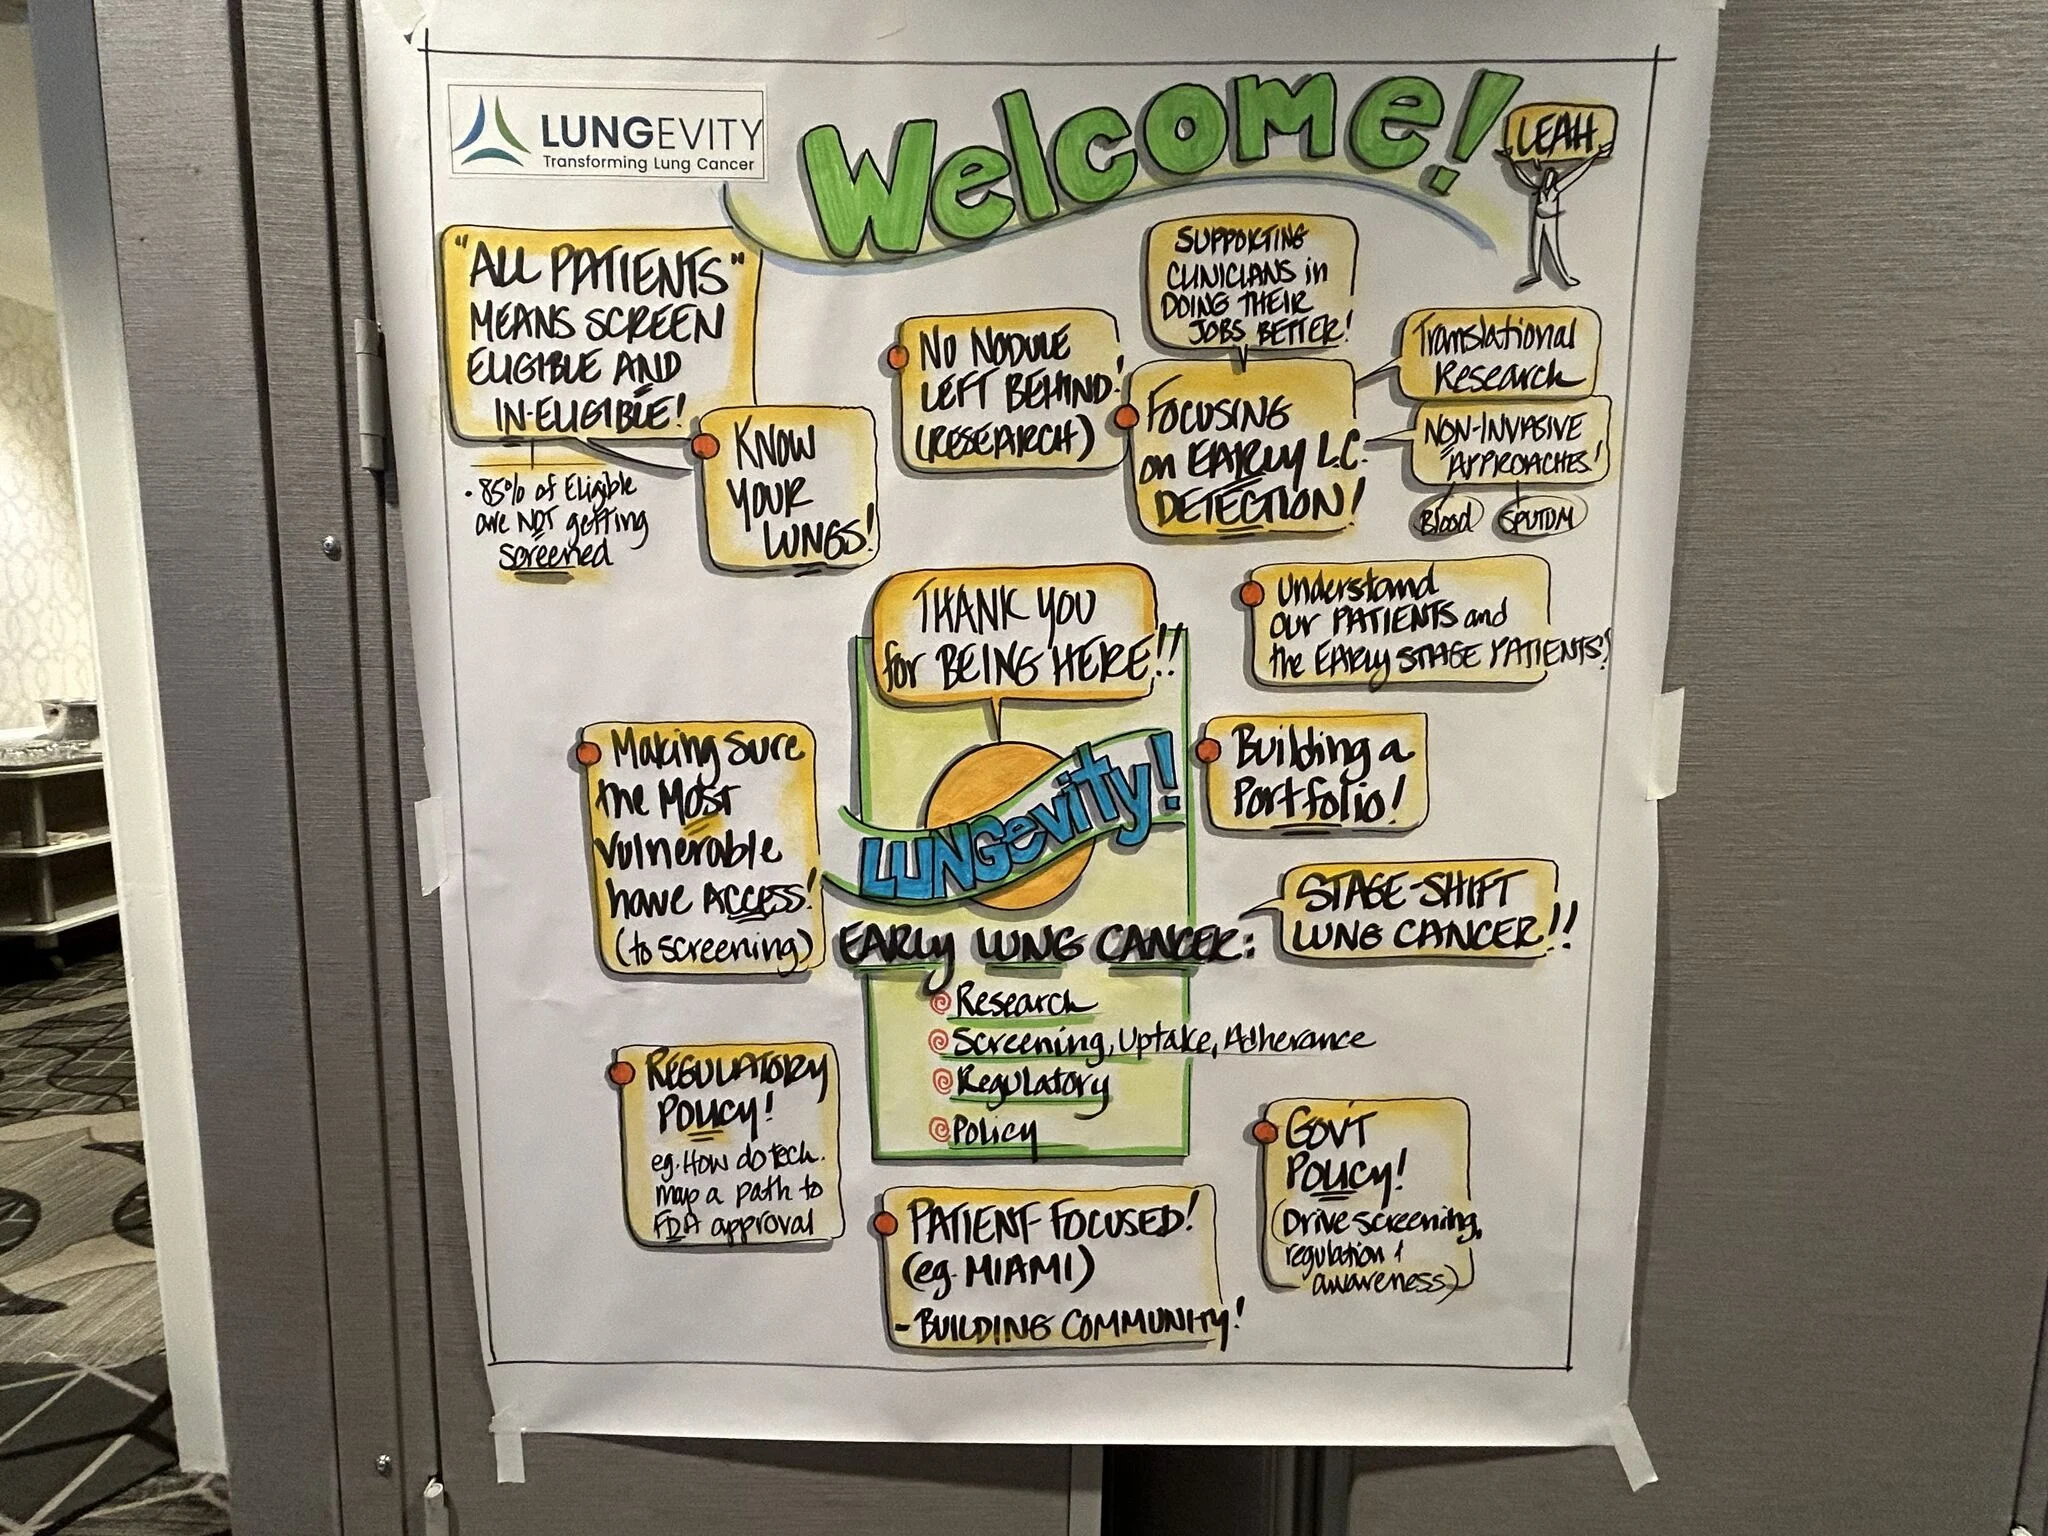 LUNGEVITY
Transforming Lung Cancer
Welcome!
LEAH
"ALL PATIENTS"
MEANS SCREEN
ELIGIBLE AND
IN-ELIGIBLE!
• 85% of Eligible
are NOT getting
screened
KNOW
YOUR
LUNGS!
NO NODULE
LEFT BEHIND!
(RESEARCH)
SUPPORTING
CLINICIANS in
DOING THEIR
JOBS BETTER!
FOCUSING
on EARLY L.C.
DETECTION!
Translational
Research
NON-INVASIVE
APPROACHES!
Blood
SPUTUM
THANK YOU
for BEING HERE!!
Understand
our PATIENTS and
the EARLY STAGE PATIENTS!
Making sure
the Most
vulnerable
have ACCESS!
(to screening)
LUNGevity!
Building a
Portfolio!
STAGE-SHIFT
LUNG CANCER!!
EARLY LUNG CANCER:
Research
Screening, Uptake, Adherance
Regulatory
Policy
REGULATORY
POLICY!
eg. How do tech.
map a path to
FDA approval
PATIENT-FOCUSED!
(eg. MIAMI)
- BUILDING COMMUNITY!
GOV'T
POLICY!
(Drive screening,
regulation +
awareness)